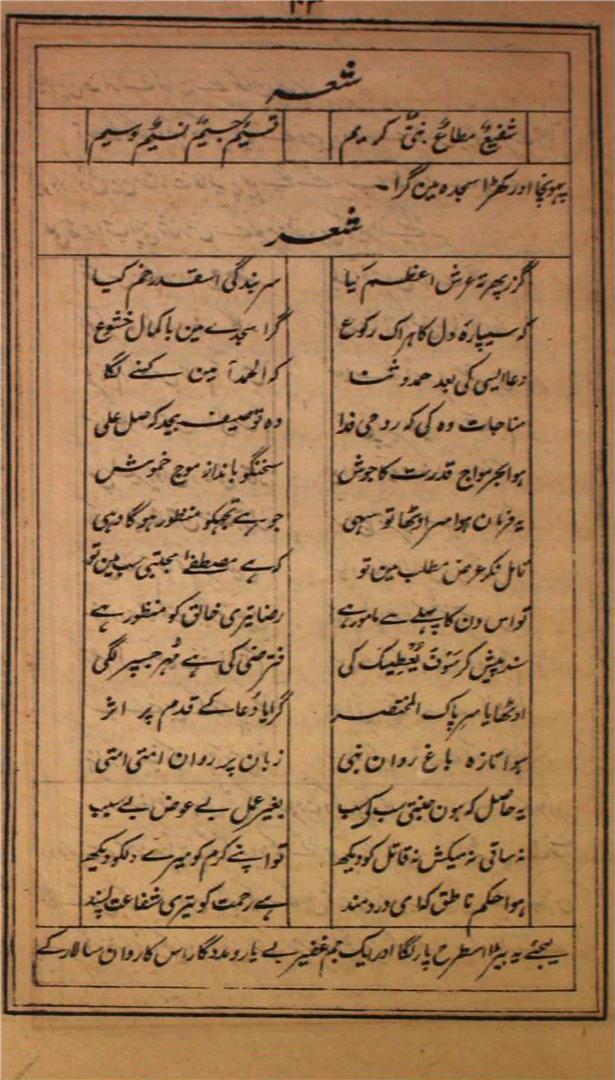 شعر
شفیعٌ مطاعٌ نبیٌّ کریم قسیمٌ جسیمٌ نسیمٌ وسیم
پہونچا اور کھڑا سجدہ مین گرا۔
شعر
گزر پھر تہ عرش اعظم کیا سر بندگی اسقدر خم کیا
کہ سیپارۂ دل کا ہر اک رکوع گرا سجدے مین با کمال خشوع
دعا ایسی کی بعد حمد و ثنا کہ الحمد آمین کہنے لگا
مناجات وہ کی کہ روحی فدا وہ توصیف بیحد کہ صل علی
ہوا بحر مواج قدرت کا جوش سخنگو بانداز موج خموش
یہ فرمان ہوا سر اوٹھا تو سہی جو ہے تجھکو منظور ہوگا وہی
تامل نکر عرض مطلب مین تو کہ ہے مصطفےٰ مجتبیٰ سب مین تو
تو اس دن کا پہلے سے مامور ہے رضا تیری خالق کو منظور ہے
سند پیش کر سَوْفَ یُعْطِیْکَ کی فترضیٰ کی ہے مُہر جسپر لگی
اوٹھایا سر پاک المختصر گرایا دُعا کے قدم پر اثر
ہوا تازہ باغ روان نبی زبان پر روان امتی امتی
یہ حاصل کہ ہون جنتی سب کے سب بغیر عمل بے عوض بے سبب
نہ ساقی نہ میکش نہ قاتل کو دیکھ تو اپنے کرم کو میرے دلکو دیکھ
ہوا حکم ناطق کہ ای دردمند ہے رحمت کو تیری شفاعت پسند
لیجئے یہ بیڑا اسطرح پار لگا اور ایک جم غفیر بے یار و مددگار اس کاروان سالار کے